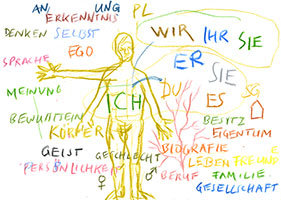 AN UNG PL
ERKENNTNIS
DENKEN SELBST
EGO
SPRACHE
MEINUNG
BEWUSTSEIN
KÖRPER
GEIST
PERSÖNLICHKEIT
ICH
GESCHLECHT
♀ ♂
WIR IHR SIE
ER SIE
DU ES SG
BESITZ
EIGENTUM
BIOGRAFIE
LEBEN FREUND
BERUF FAMILIE
GESELLSCHAFT